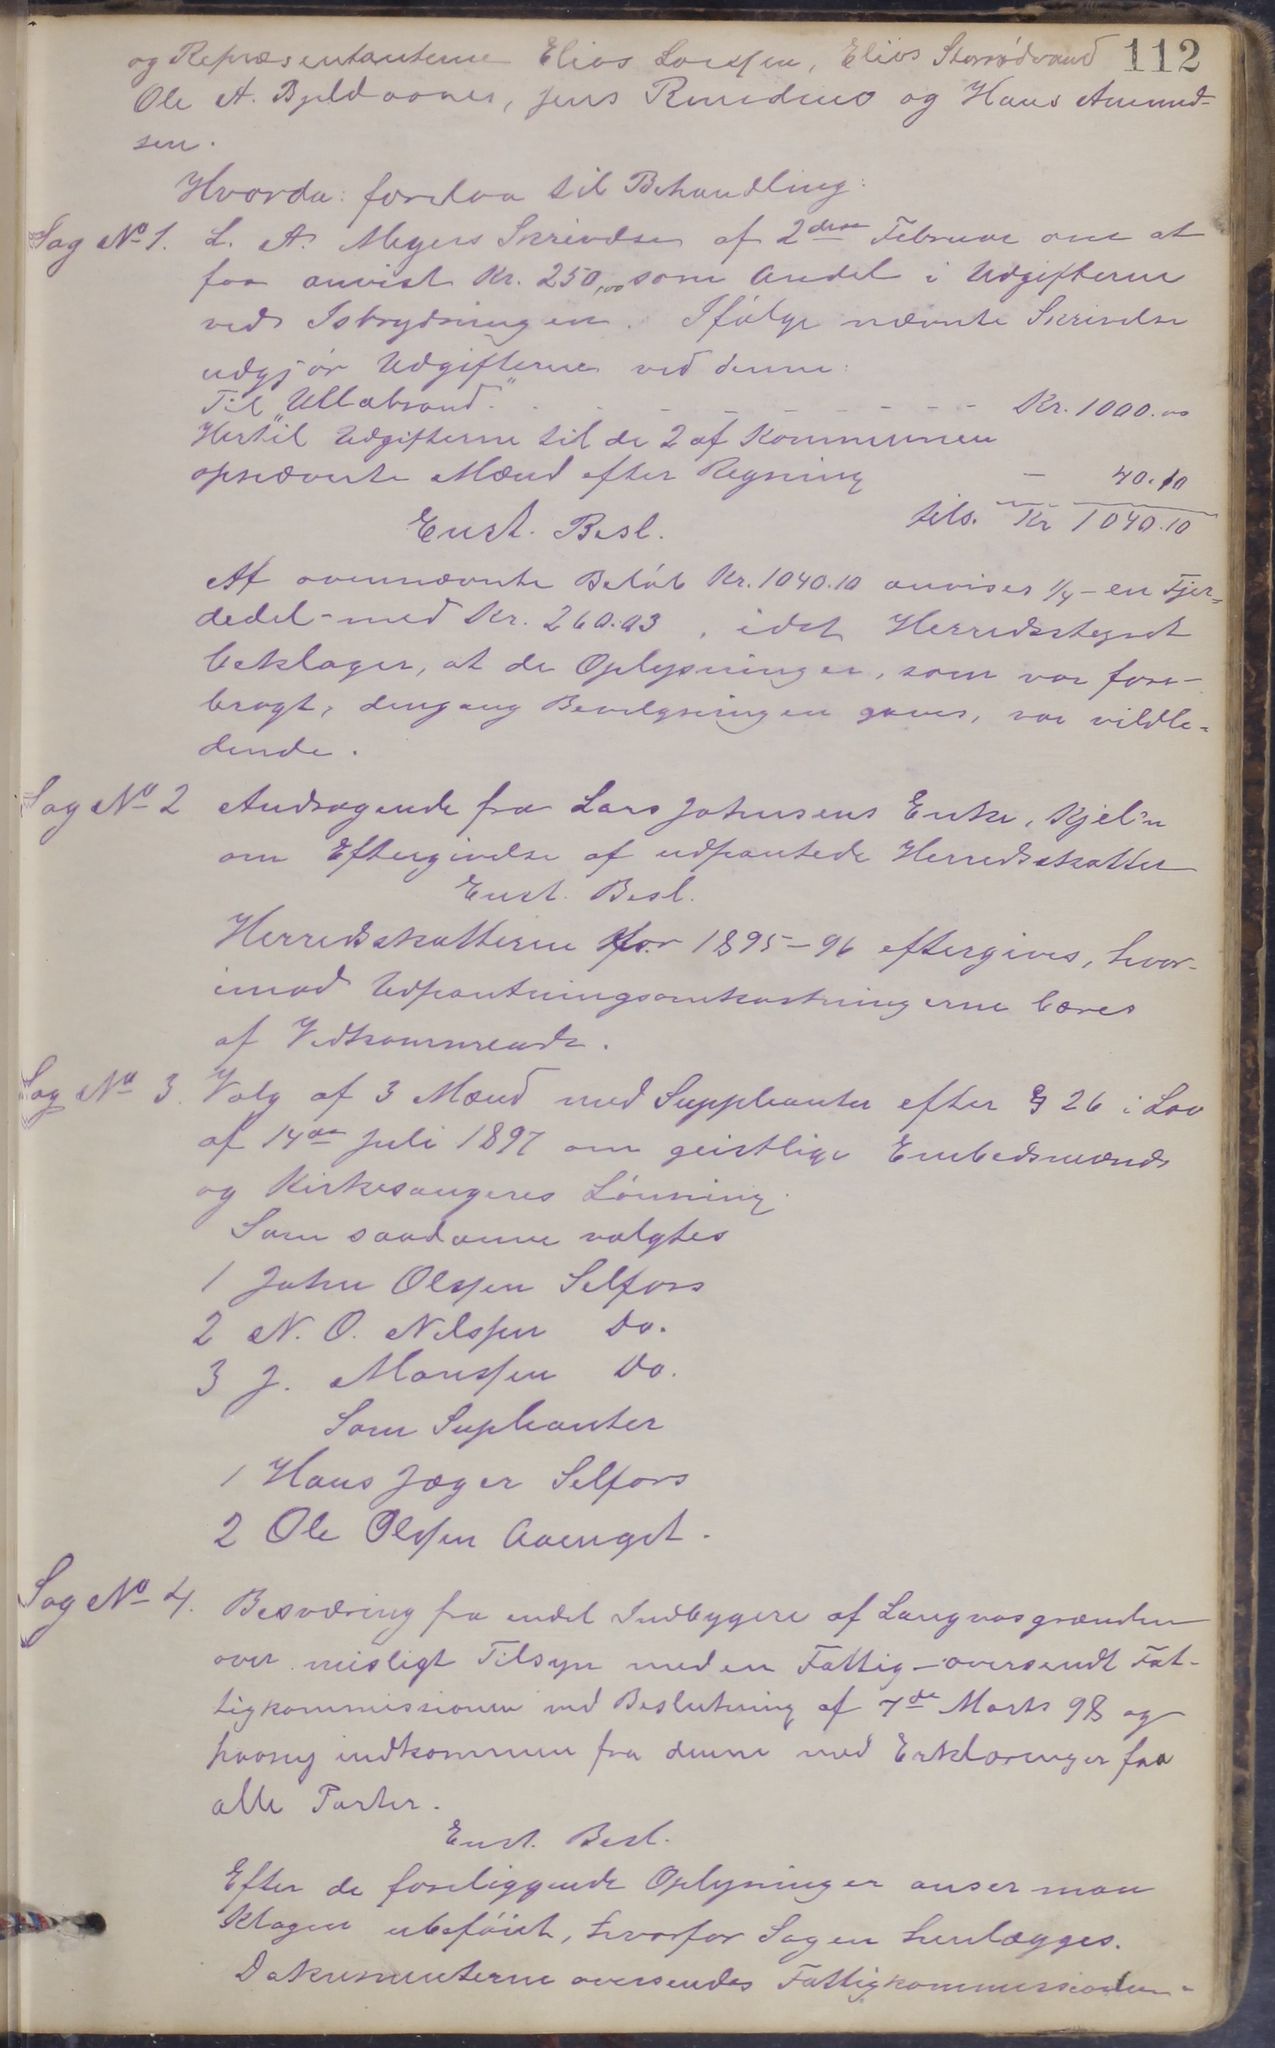 112
og Repræsentanterne Elias Larssen, Elias Storrødvand
Ole A. Bjeldaanes, Jens Renedmo og Hans Amund-
sen.
Hvorda: forelaa til Behandling:
Sag No 1. L. A. Meyers Skrivelse af 2den Februar om at
faa anvist Kr. 250,00 som Andel i Udgifterne
ved Isbrydningen. Ifølge nævnte Skrivelse
udgjør Udgifterne ved denne:
Til "Ullabrand" . . - - - - - - - Kr. 1000.00
Hertil Udgifterne til de 2 af Kommunen
opnævnte Mænd efter Regning - 40.10
tils. Kr 1040.10
Enst. Besl.
Af ovennævnte Beløb Kr. 1040.10 anvises 1/4 - en Fjer-
dedel - med Kr. 260.03, idet Herredsstyret
beklager, at de Oplysninger, som var frem-
bragt, dengang Bevilgningen gaves, var vildle-
dende.
Sag No 2 Andragende fra Lars Johnsens Enke, Kjel'n
om Eftergivelse af udpantede Herredsskatter
Enst. Besl.
Herredsskatterne for 1895-96 eftergives, hvor-
imod Udpantningsomkostningerne bæres
af Vedkommende.
Sag No 3. Valg af 3 Mænd med Suppleanter efter § 26 i Lov
af 14de Juli 1897 om geistlige Embedsmænds
og Kirkesangeres Lønning.
Som saadanne valgtes
1 John Olssen Selfors
2 N. O. Nilssen Do.
3 J. Monssen Do.
Som Supleanter
1 Hans Jæger Selfors
2 Ole Olssen Aaenget.
Sag No 4. Besværing fra endel Indbyggere af Langvasgrænden
over misligt Tilsyn med en Fattig - oversendt Fat-
tigkommissionen ved Beslutning af 7de Marts 98 og
paany indkommen fra denne med Erklæringer fra
alle Parter.
Enst. Besl.
Efter de foreliggende Oplysninger anser man
Klagen ubeføiet, hvorfor Sagen henlægges.
Dokumenterne oversendes Fattigkommissionen.